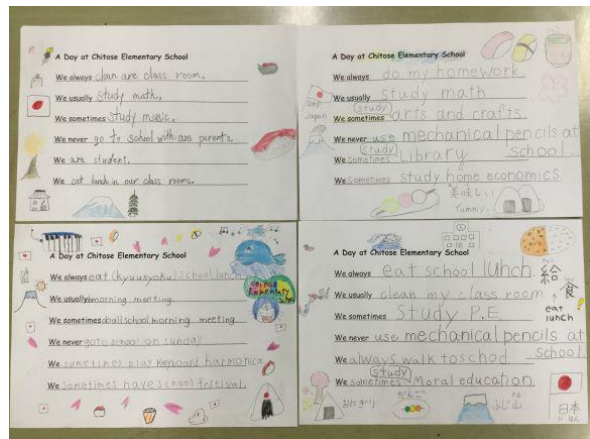 A Day at Chitose Elementary School
We always clean are class room.
We usually study math.
We sometimes study music.
We never go to school with are parents.
We are student.
We eat lunch in our class rooms.
A Day at Chitose Elementary School
We always do my homework
We usually study math
We sometimes (study) arts and crafts
Japan
We never use mechanical pencils at school
We sometimes (study) Library
We sometimes study home economics
美味しい
Yummy
A Day at Chitose Elementary School
We always eat (kyuusyoku) school lunch
We usually morning meeting.
We sometimes do all school morning meeting
We never go to school on sunday
We sometimes play keyboard harmonica
We sometimes have school festival.
A Day at Chitose Elementary School
We always eat school lunch
給食
eat lunch
We usually clean my class room
We sometimes Study P.E
We never use mechanical pencils at school
We always walk to school
We sometimes (study) Moral education
おにぎり
だんご
ふじ山
日本